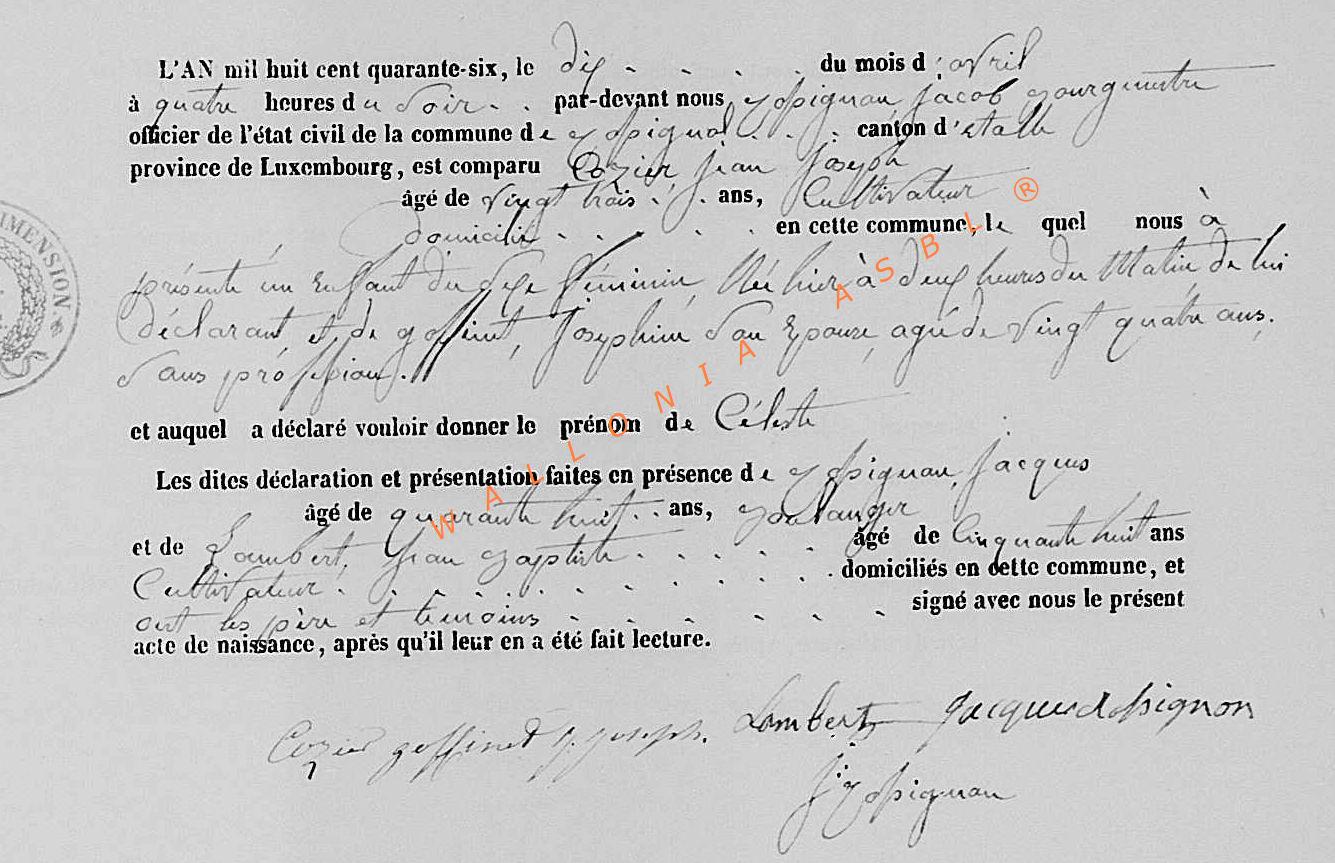 L'AN mil huit cent quarante-six, le dix du mois d'avril
à quatre heures du Soir par-devant nous, Rossignon Jacob Bourgmestre
officier de l'état civil de la commune de Rossignol canton d'etalle
province de Luxembourg, est comparu Cozier, Jean Joseph
âgé de vingt trois ans, Cultivateur
domicilié en cette commune, le quel nous à
présenté un Enfant du sexe féminin, Née hier à deux heures du Matin de lui
déclarant, et de goffinet, Josephine Son Epouze, agé de vingt quatre ans,
Sans proféssion.
et auquel a déclaré vouloir donner le prénom de Céleste
Les dites déclaration et présentation faites en présence de Rossignon, Jacques
âgé de quarante huit ans, Boulanger
et de Lambert, Jean Baptiste âgé de Cinquante huit ans
Cultivateur domiciliés en cette commune, et
ont les père et temoins signé avec nous le présent
acte de naissance, après qu'il leur en a été fait lecture.
Cozier goffinet j. joseph. Lambert Jacques Rossignon
J. Rossignon
IMENSION
WALLONIA ASBL ®